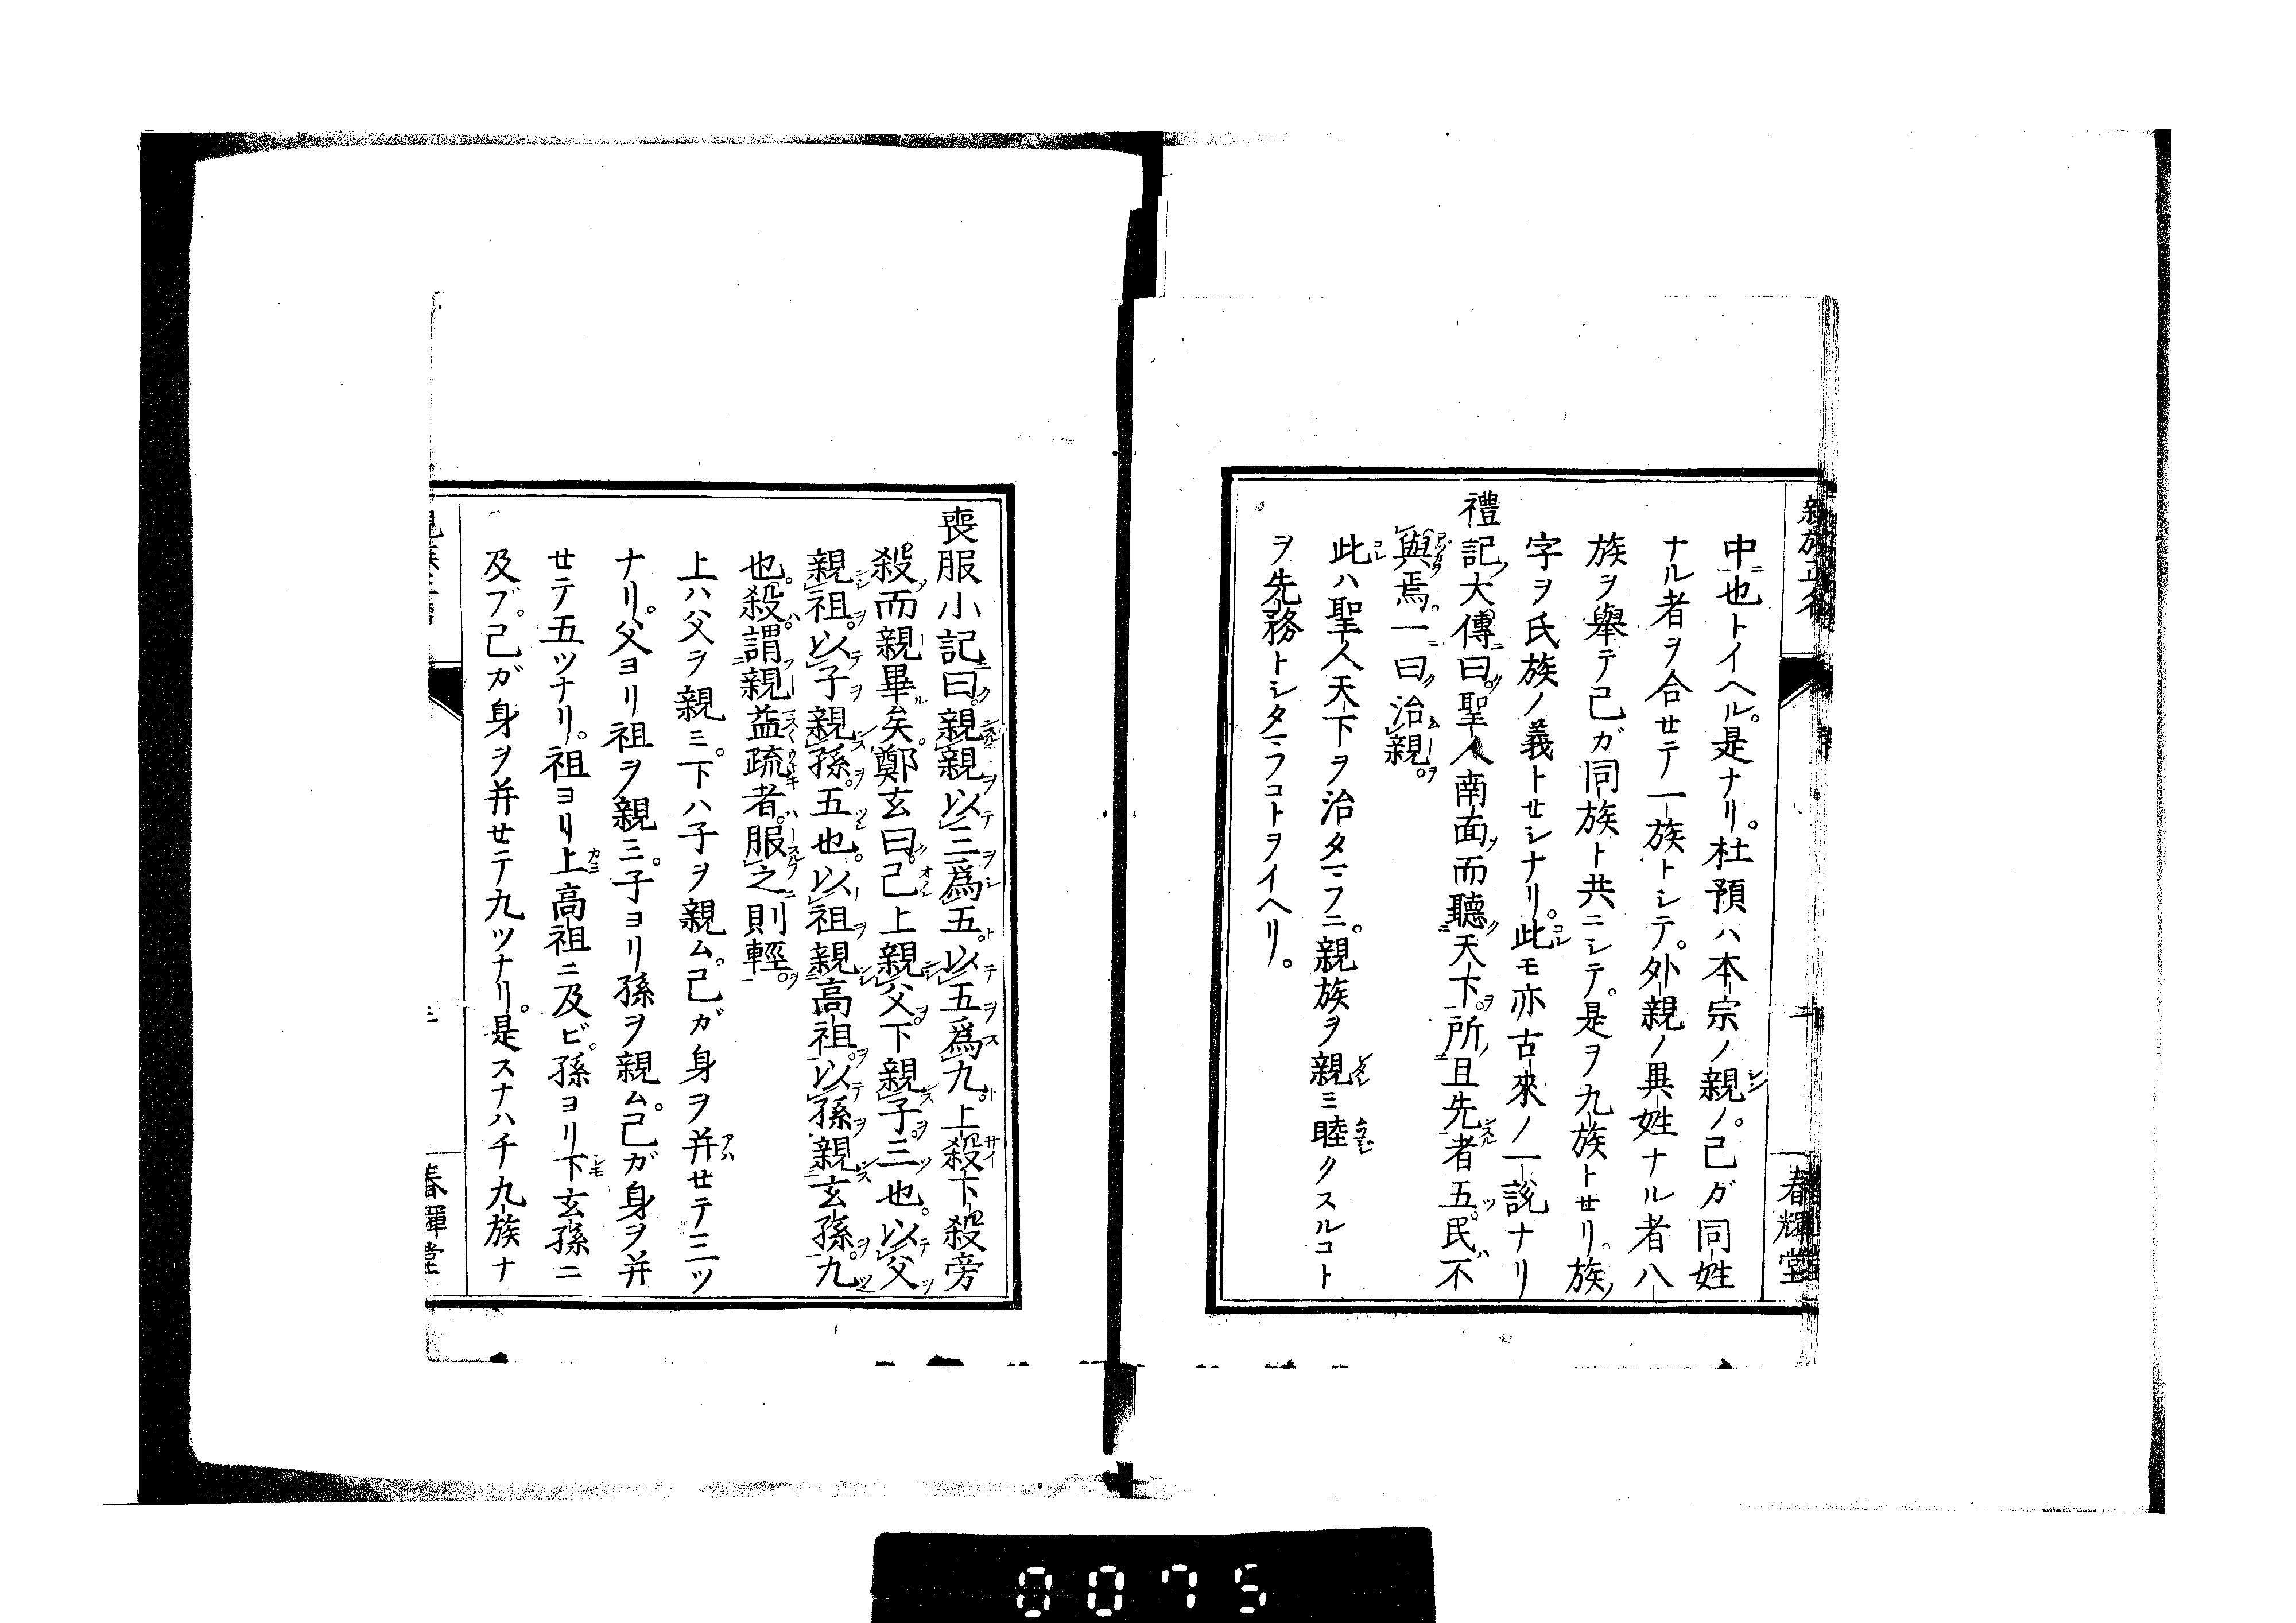 親族正名
春輝堂
中也トイヘル。是ナリ。杜預ハ本宗ノ親ノ。己ガ同姓
ナル者ヲ合セテ一族トシテ。外親ノ異姓ナル者八
族ヲ舉テ己ガ同族ト共ニシテ。是ヲ九族トセリ。族
字ヲ氏族ノ義トセシナリ。此モ亦古來ノ一說ナリ
禮記大傳曰。聖人南面而聽天下。所且先者五。民不
與焉。一曰。治親。
此ハ聖人天下ヲ治タマフニ。親族ヲ親ミ睦クスルコト
ヲ先務トシタマフコトヲイヘリ。
喪服小記曰。親親以三爲五。以五爲九。上殺下殺旁
殺。而親畢矣。鄭玄曰。己上親父。下親子。三也。以父
親祖。以子親孫。五也。以祖親高祖。以孫親玄孫。九
也。殺謂親益疏者。服之則輕。
上ハ父ヲ親ミ。下ハ子ヲ親ム。己ガ身ヲ并セテ三ツ
ナリ。父ヨリ祖ヲ親ミ。子ヨリ孫ヲ親ム。己ガ身ヲ并
セテ五ツナリ。祖ヨリ上高祖ニ及ビ。孫ヨリ下玄孫ニ
及ブ。己ガ身ヲ并セテ九ツナリ。是スナハチ九族ナ
春輝堂
0075